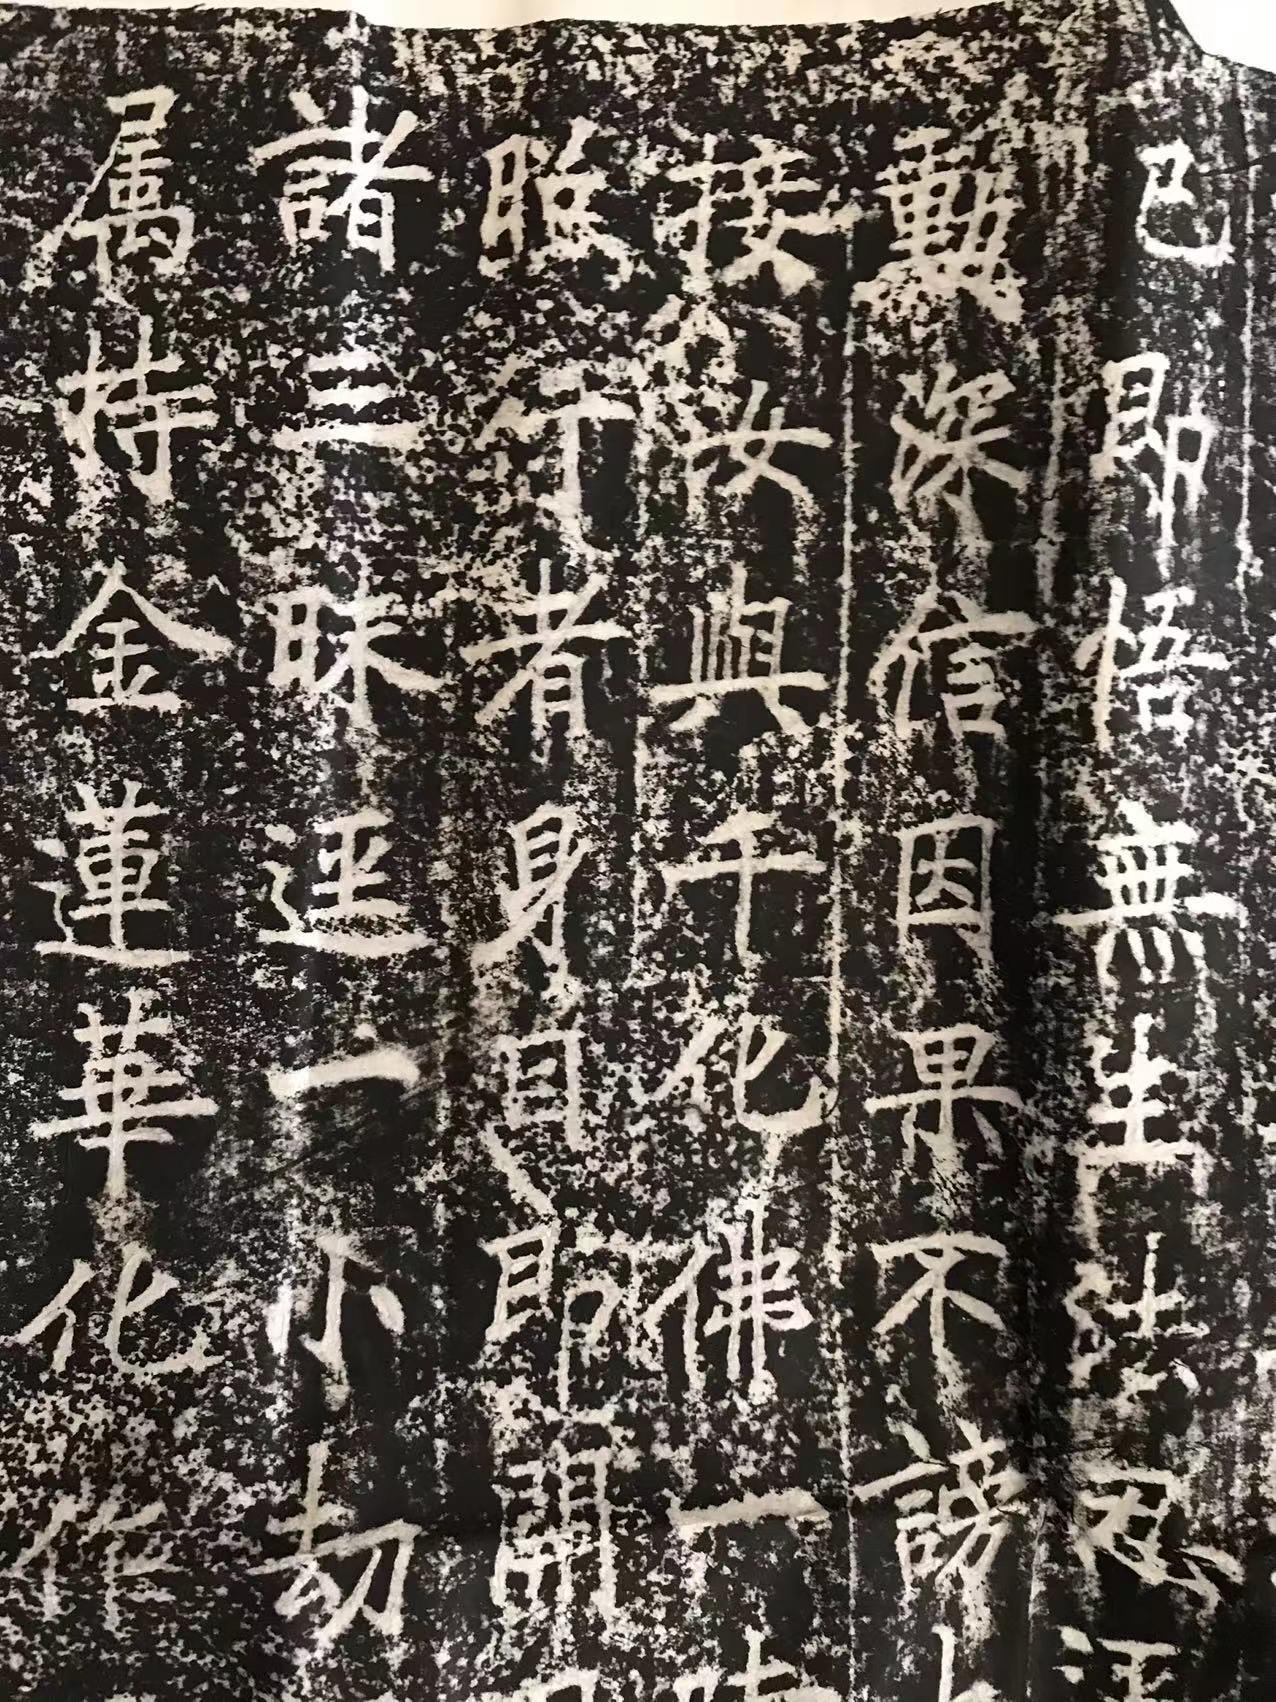 已即悟無生法忍
動深信因果不謗
接汝與千化佛一
照行者身目即開
諸三昧逕一小劫
属持金蓮華化作